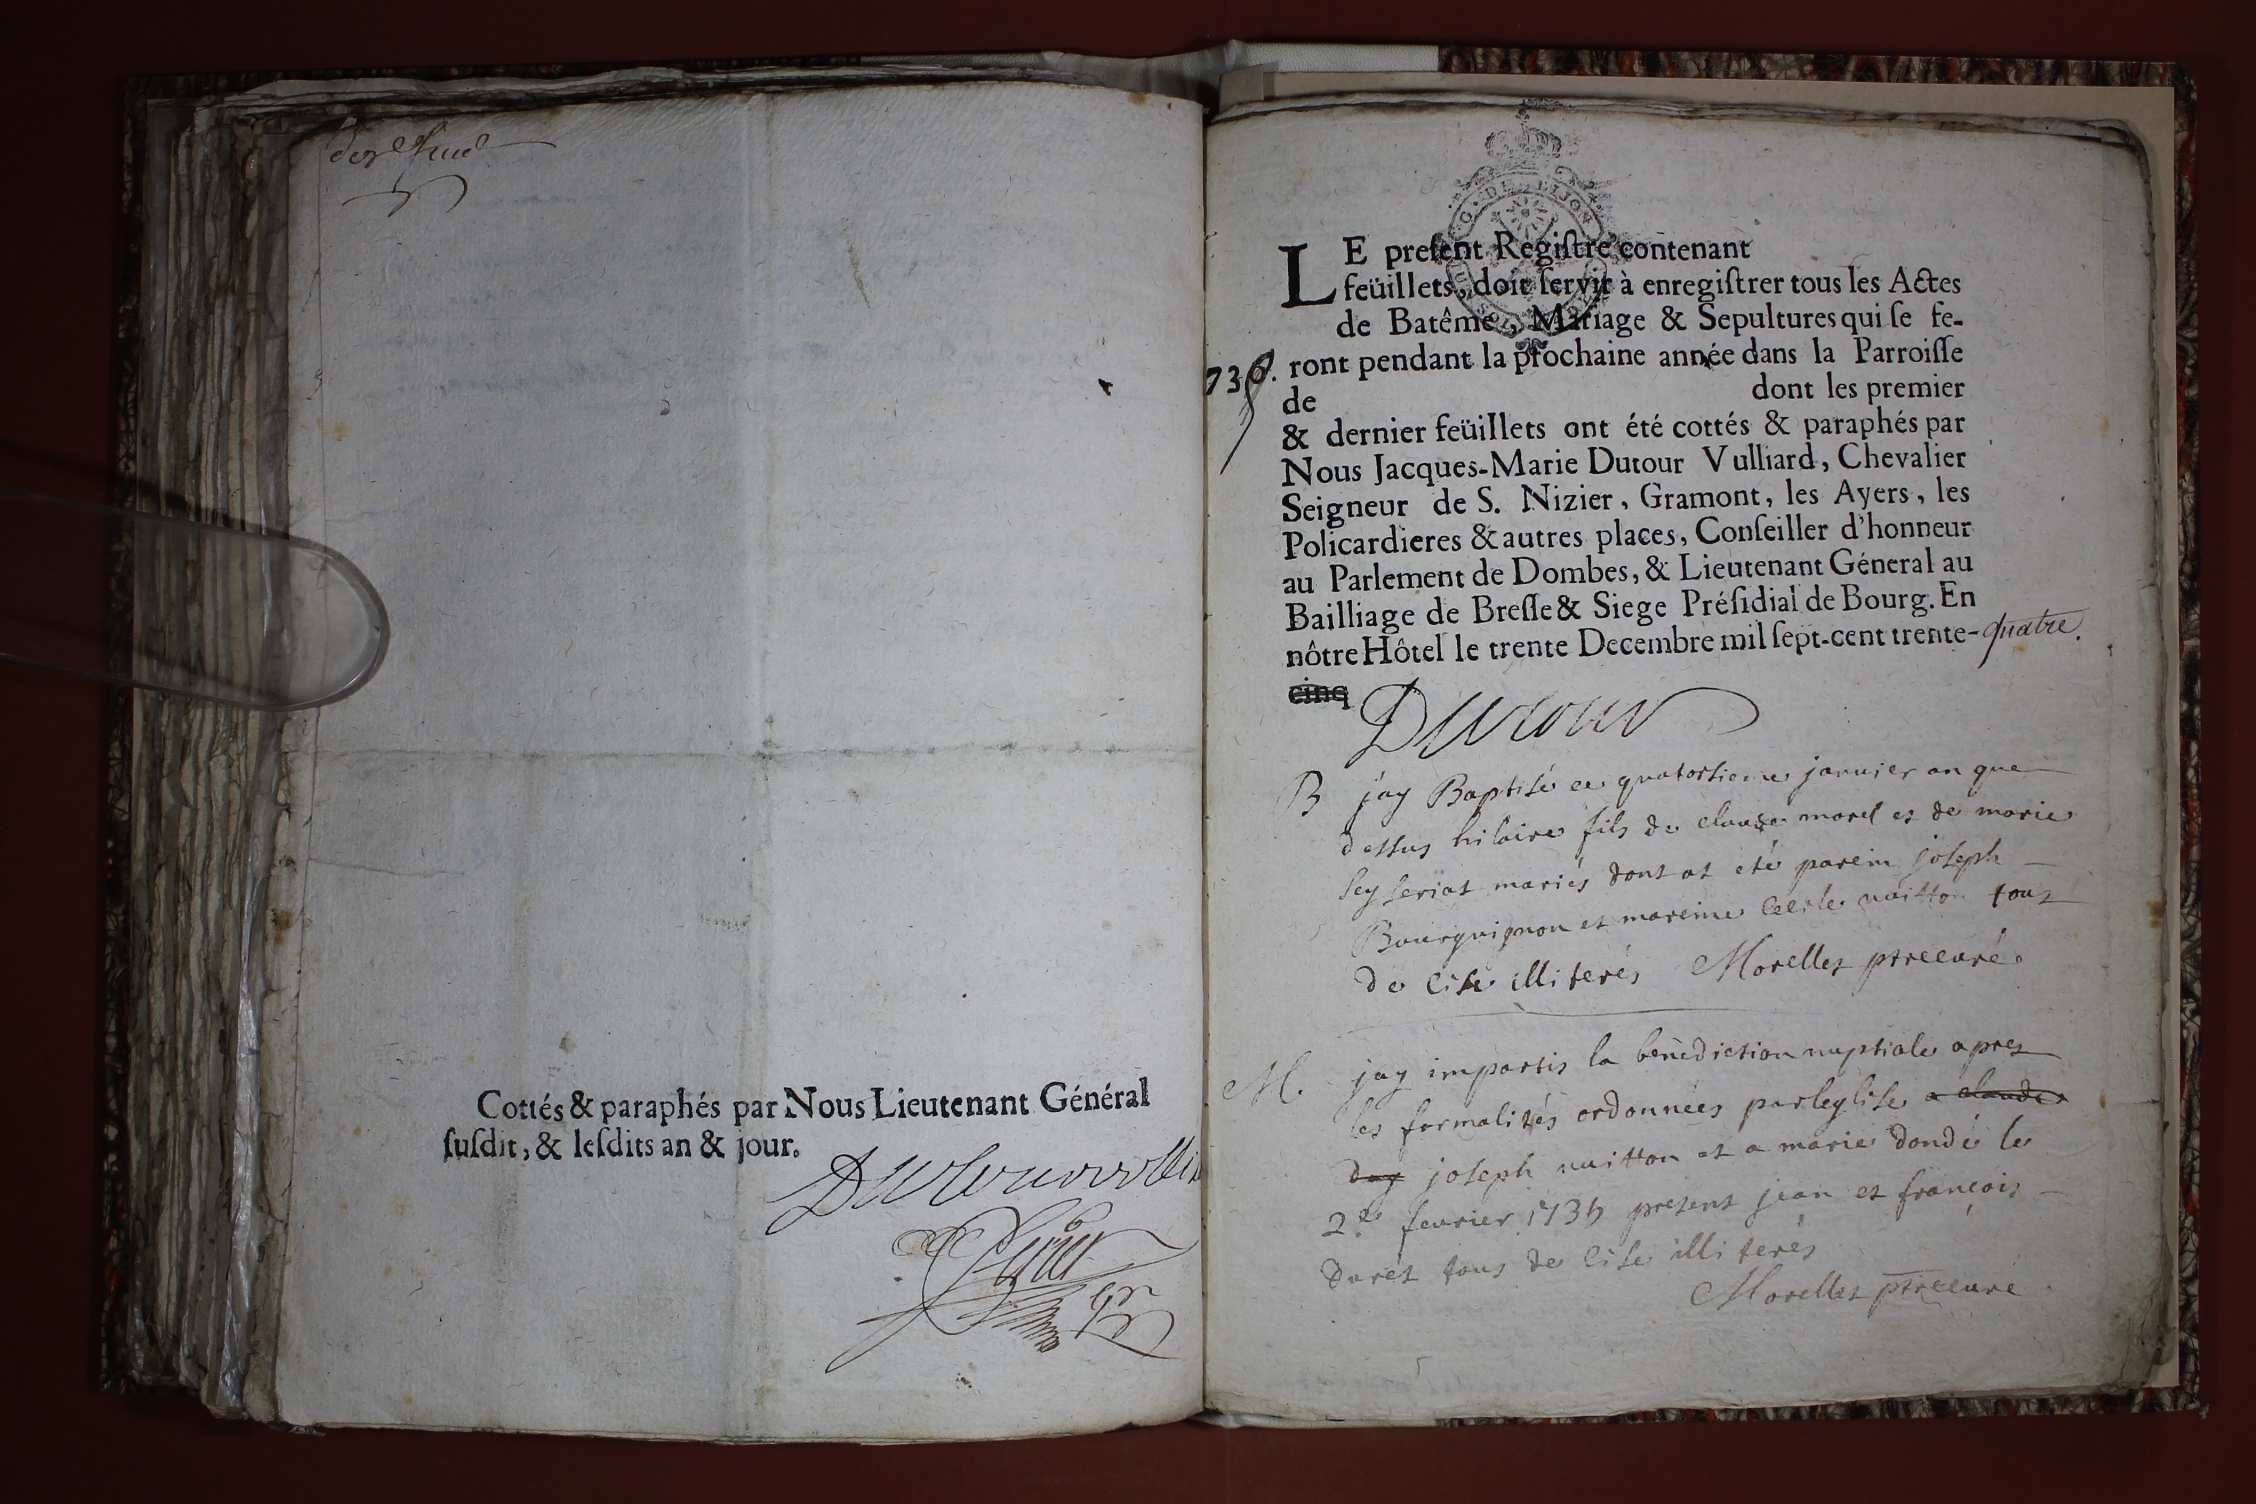 Cottés & paraphés par Nous Lieutenant Général
ſuſdit, & leſdits an & jour.
G. DE DIJON
LE preſent Regiſtre contenant
feüillets, doit ſervir à enregiſtrer tous les Actes
de Batême, Mariage & Sepultures qui ſe fe-
ront pendant la prochaine année dans la Parroiſſe
de dont les premier
& dernier feüillets ont été cottés & paraphés par
Nous Jacques-Marie Dutour Vulliard, Chevalier
Seigneur de S. Nizier, Gramont, les Ayers, les
Policardieres & autres places, Conſeiller d'honneur
au Parlement de Dombes, & Lieutenant Géneral au
Bailliage de Breſſe & Siege Préſidial de Bourg. En
nôtre Hôtel le trente Decembre mil ſept-cent trente-quatre.
cinq
Dutour
B jay Baptisé ce quatortieme janvier an que
dessus hilaire fils de claude morel et de marie
seyseriat mariés dont at eté parein joseph
Bourguignon et mareine Cecile vuitton tous
de Cise illiterés Morellet ptre curé.
M. jay impartis la bénédiction nuptiale apres
les formalités ordonnées par leglise a claude
duy joseph vuitton et a marie dondé le
2e fevrier 1735 present jean et françois
duret tous de Cise illiterés
Morellet ptre curé